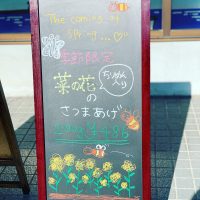 The coming of
spring...♡
季節限定
菜の花
ちりめん
入り
の
さつまあげ